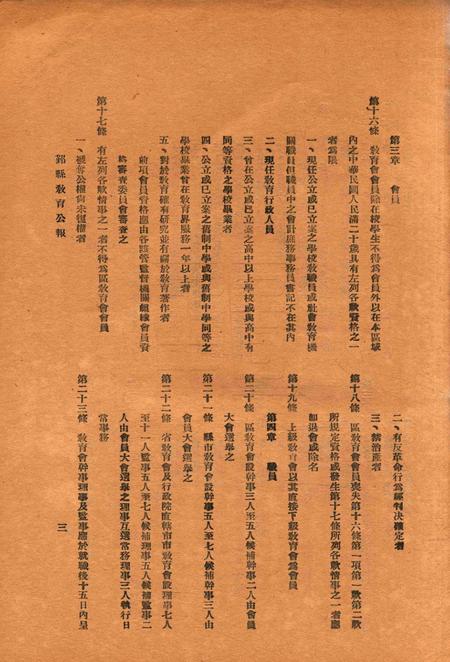 第三章　會員
第十六條　敎育會會員除在校學生不得爲會員外以在本區域
內之中華民國人民滿二十歲具有左列各款資格之一
者爲限
一、現任公立或已立案之學校敎職員或社會敎育機
關職員但職員中之會計庶務事務員書記不在其內
二、現任敎育行政人員
三、曾在公立或已立案之高中以上學校或與高中有
同等資格之學校畢業者
四、公立或已立案之舊制中學或與舊制中學同等之
學校畢業曾在敎育界服務一年以上者
五、對於敎育確有研究並有關於敎育著作者
前項會員資格應由各該管監督機關組織會員資
格審查委員會審查之
第十七條　有左列各款情事之一者不得爲區敎育會會員
一、褫奪公權尚未復權者
鄞縣敎育公報
二、有反革命行爲經判决確定者
三、禁治產者
第十八條　區敎育會會員喪失第十六條第一項第一款第二款
所規定資格或發生第十七條所列各款情事之一者應
卽退會或除名
第十九條　上級敎育會以其直接下級敎育會爲會員
第四章　職員
第二十條　區敎育會設幹事三人至五人候補幹事二人由會員
大會選舉之
第二十一條　縣市敎育會設幹事五人至七人候補幹事三人由
會員大會選舉之
第二十二條　省敎育會及行政院直轄市市敎育會設理事七人
至十一人監事五人至七人候補理事五人候補監事二
人由會員大會選舉之理事互選常務理事三人執行日
常事務
第二十三條　敎育會幹事理事及監事應於就職後十五日內呈
三